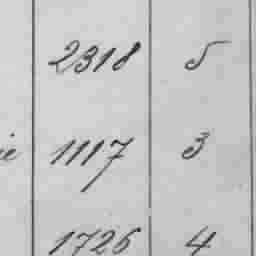 2318 5
ie 1117 3
1726 4